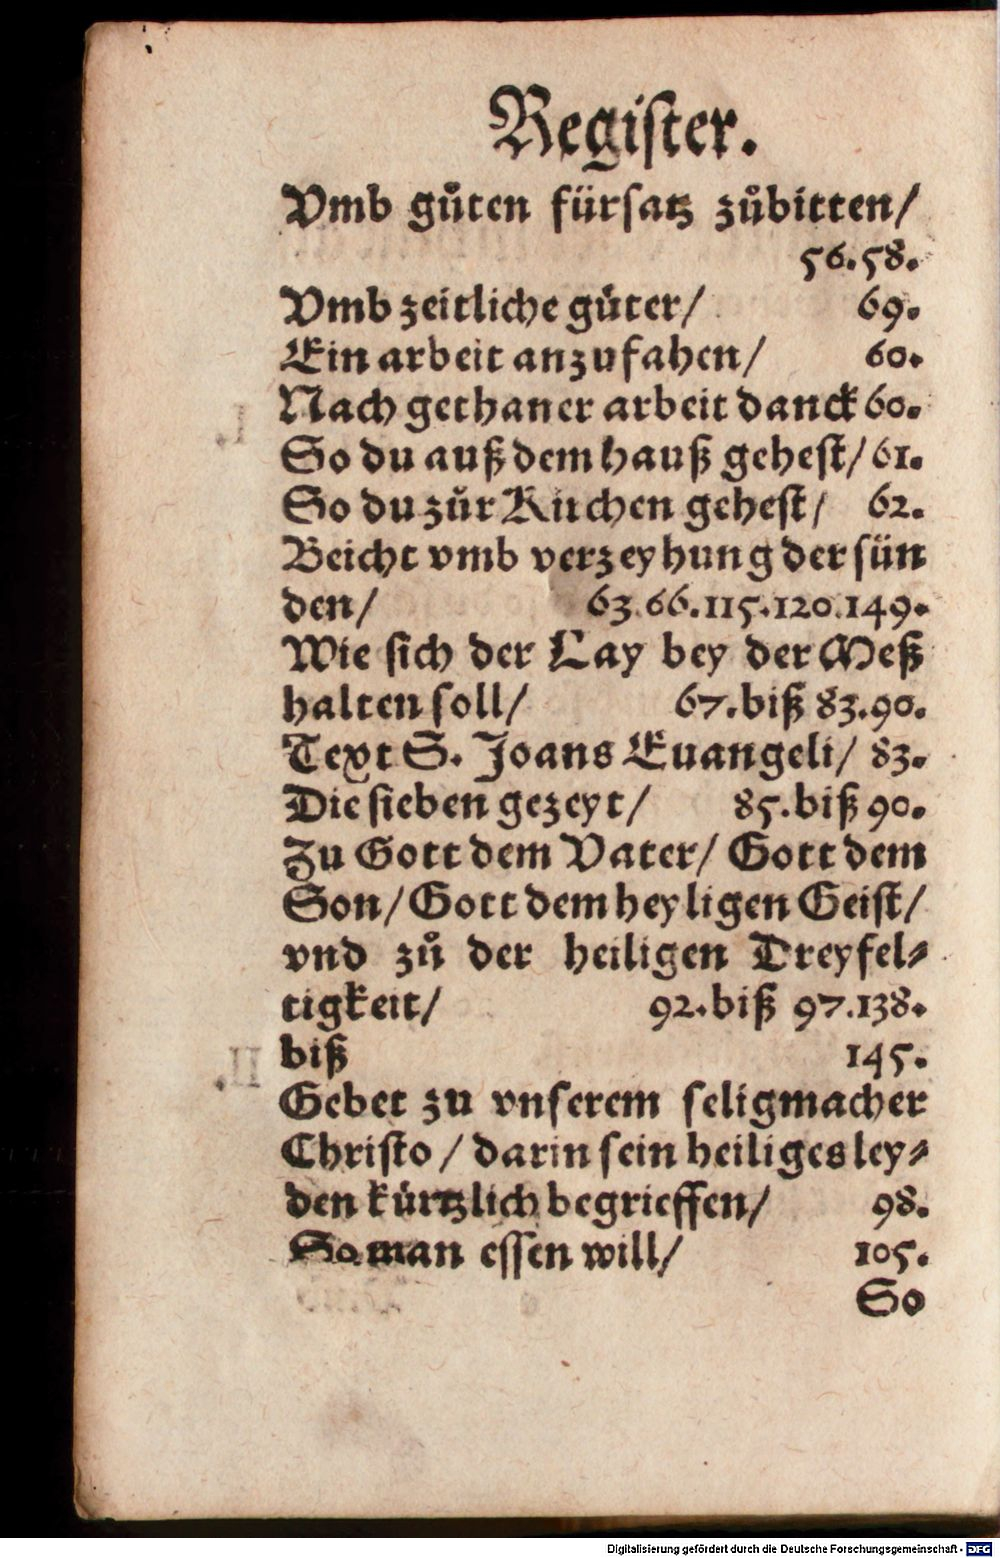 Register.
Vmb gůten fürsatz zůbitten/
56.58.
Vmb zeitliche gůter/ 69.
Ein arbeit anzufahen/ 60.
Nach gethaner arbeit danck 60.
So du auß dem hauß gehest/ 61.
So du zůr Kuchen gehest/ 62.
Beicht vmb verzeyhung der sün
den/ 63.66.115.120.149.
Wie sich der Lay bey der Meß
halten soll/ 67.biß 83.90.
Text S. Joans Euangeli/ 83.
Die sieben gezeyt/ 85.biß 90.
Zu Gott dem Vater/ Gott dem
Son/ Gott dem heyligen Geist/
vnd zů der heiligen Dreyfel⸗
tigkeit/ 92.biß 97.138.
biß 145.
Gebet zu vnserem seligmacher
Christo/ darin sein heiliges ley⸗
den kürtzlich begrieffen/ 98.
So man essen will/ 105.
So
Digitalisierung gefördert durch die Deutsche Forschungsgemeinschaft - DFG